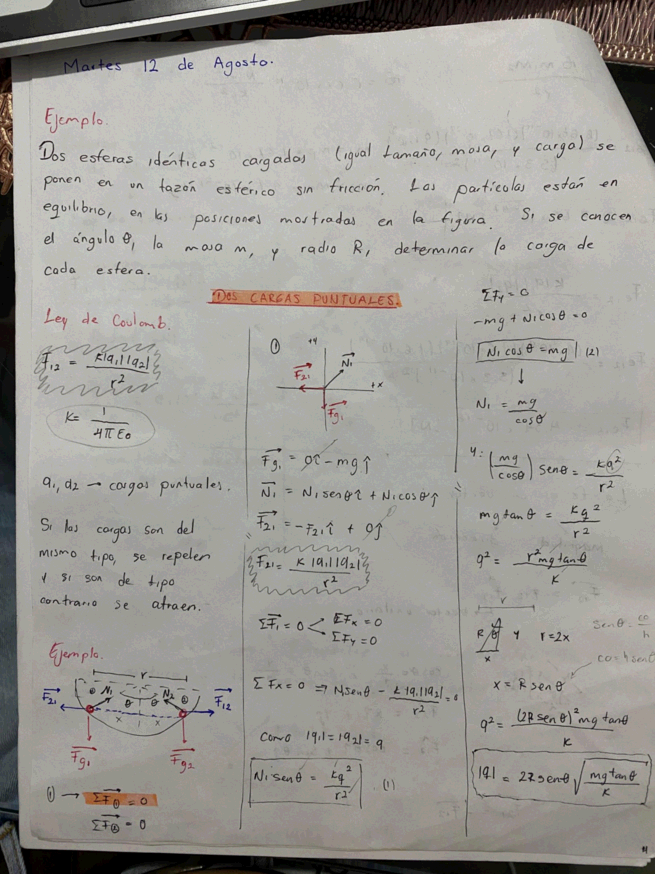 Martes 12 de Agosto.
Ejemplo.
Dos esferas idénticas cargadas (igual tamaño, masa, y carga) se
ponen en un tazón esférico sin fricción. Las partículas están en
equilibrio, en las posiciones mostradas en la figura. Si se conocen
el ángulo θ, la masa m, y radio R, determinar la carga de
cada esfera.
DOS CARGAS PUNTUALES.
Ley de Coulomb.
F₁₂ = k|q₁||q₂| / r²
K = 1 / 4πε₀
q₁, q₂ → cargas puntuales.
Si las cargas son del
mismo tipo, se repelen
y si son de tipo
contrario se atraen.
Ejemplo.
r
F₂₁ N₁ θ θ N₂ F₁₂
x x
Fg₁ Fg₂
① → ΣF① = 0
ΣF② = 0
① +y
N₁
F₂₁ +x
Fg₁
Fg₁ = 0î - mgĵ
N₁ = N₁ senθ î + N₁ cosθ ĵ
F₂₁ = -F₂₁ î + 0ĵ
F₂₁ = k|q₁||q₂| / r²
ΣF₁ = 0 < ΣFx = 0
ΣFy = 0
ΣFx = 0 ⇒ N₁senθ - k|q₁||q₂| / r² = 0
como |q₁| = |q₂| = q
N₁ senθ = kq² / r² (1)
ΣFy = 0
-mg + N₁cosθ = 0
N₁ cosθ = mg (2)
↓
N₁ = mg / cosθ
y: (mg / cosθ) senθ = kq² / r²
mg tanθ = kq² / r²
q² = r² mg tanθ / k
r
R θ y r = 2x
x
senθ = co / h
co = h senθ
x = R senθ
q² = (2R senθ)² mg tanθ / k
|q| = 2R senθ √(mg tanθ / k)